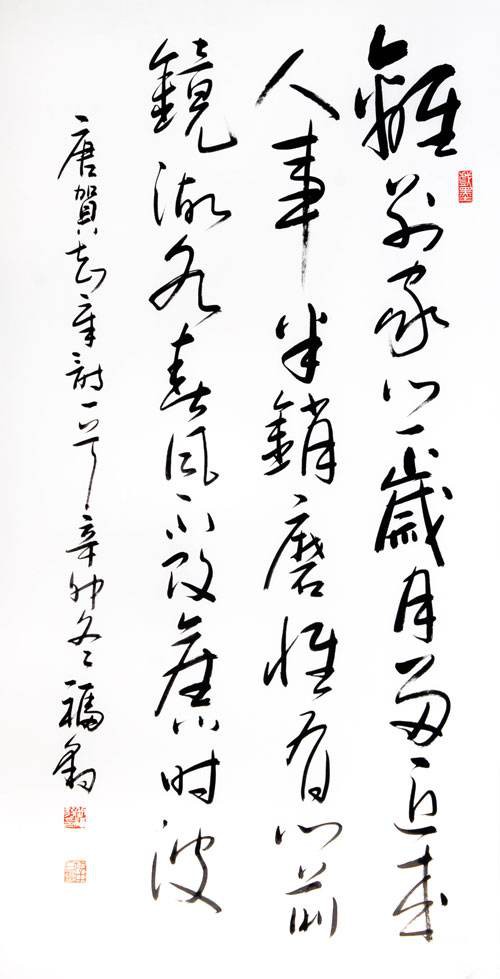 離別家鄉歲月多近来
人事半銷磨惟有門前
鏡湖水春風不改舊时波
唐賀知章詩一首辛卯冬福